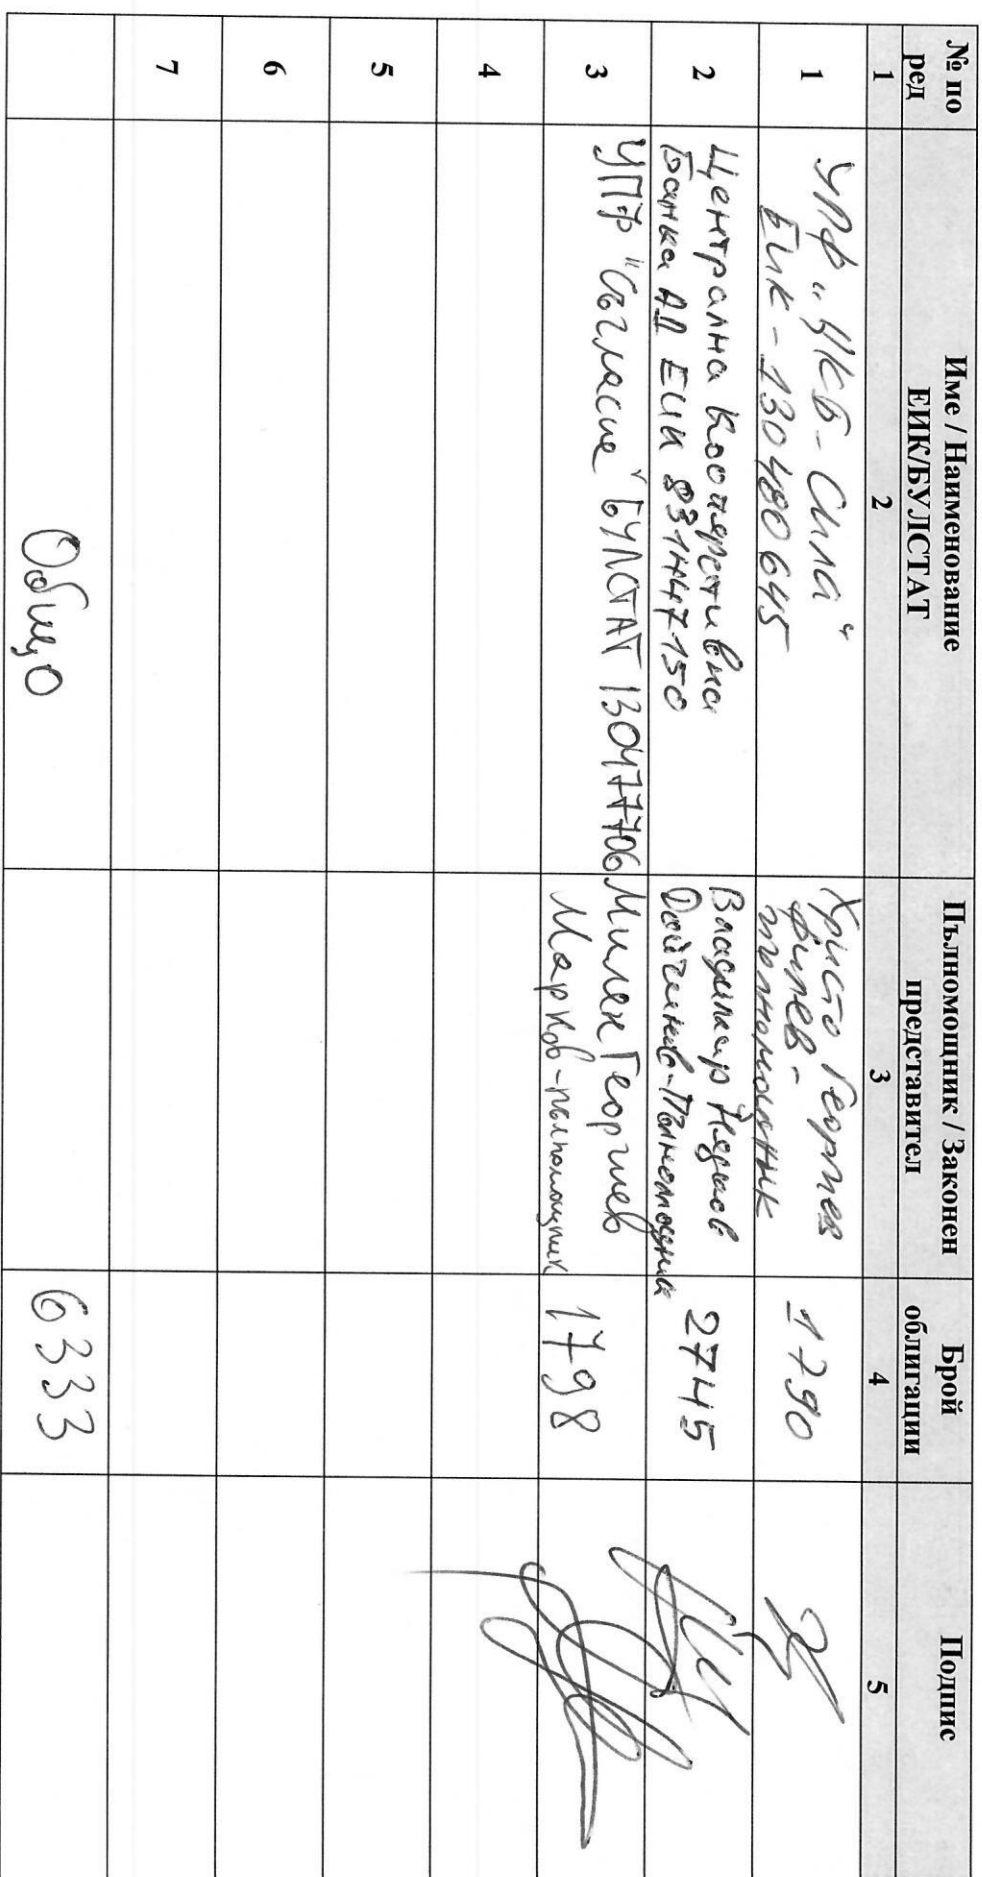 № по
ред
Име / Наименование
ЕИК/БУЛСТАТ
Пълномощник / Законен
представител
Брой
облигации
Подпис
1
2
3
4
5
1
УПФ „ЦКБ - Сила“
ЕИК - 130480645
Христо Георгиев
Филев -
пълномощник
1790
2
Централна Кооперативна
Банка АД ЕИК 831447150
Владимир Недялков
Дойчинов - Пълномощник
2745
3
УПФ "Съгласие" БУЛСТАТ 130477706
Милен Георгиев
Марков - пълномощник
1798
4
5
6
7
Общо
6333